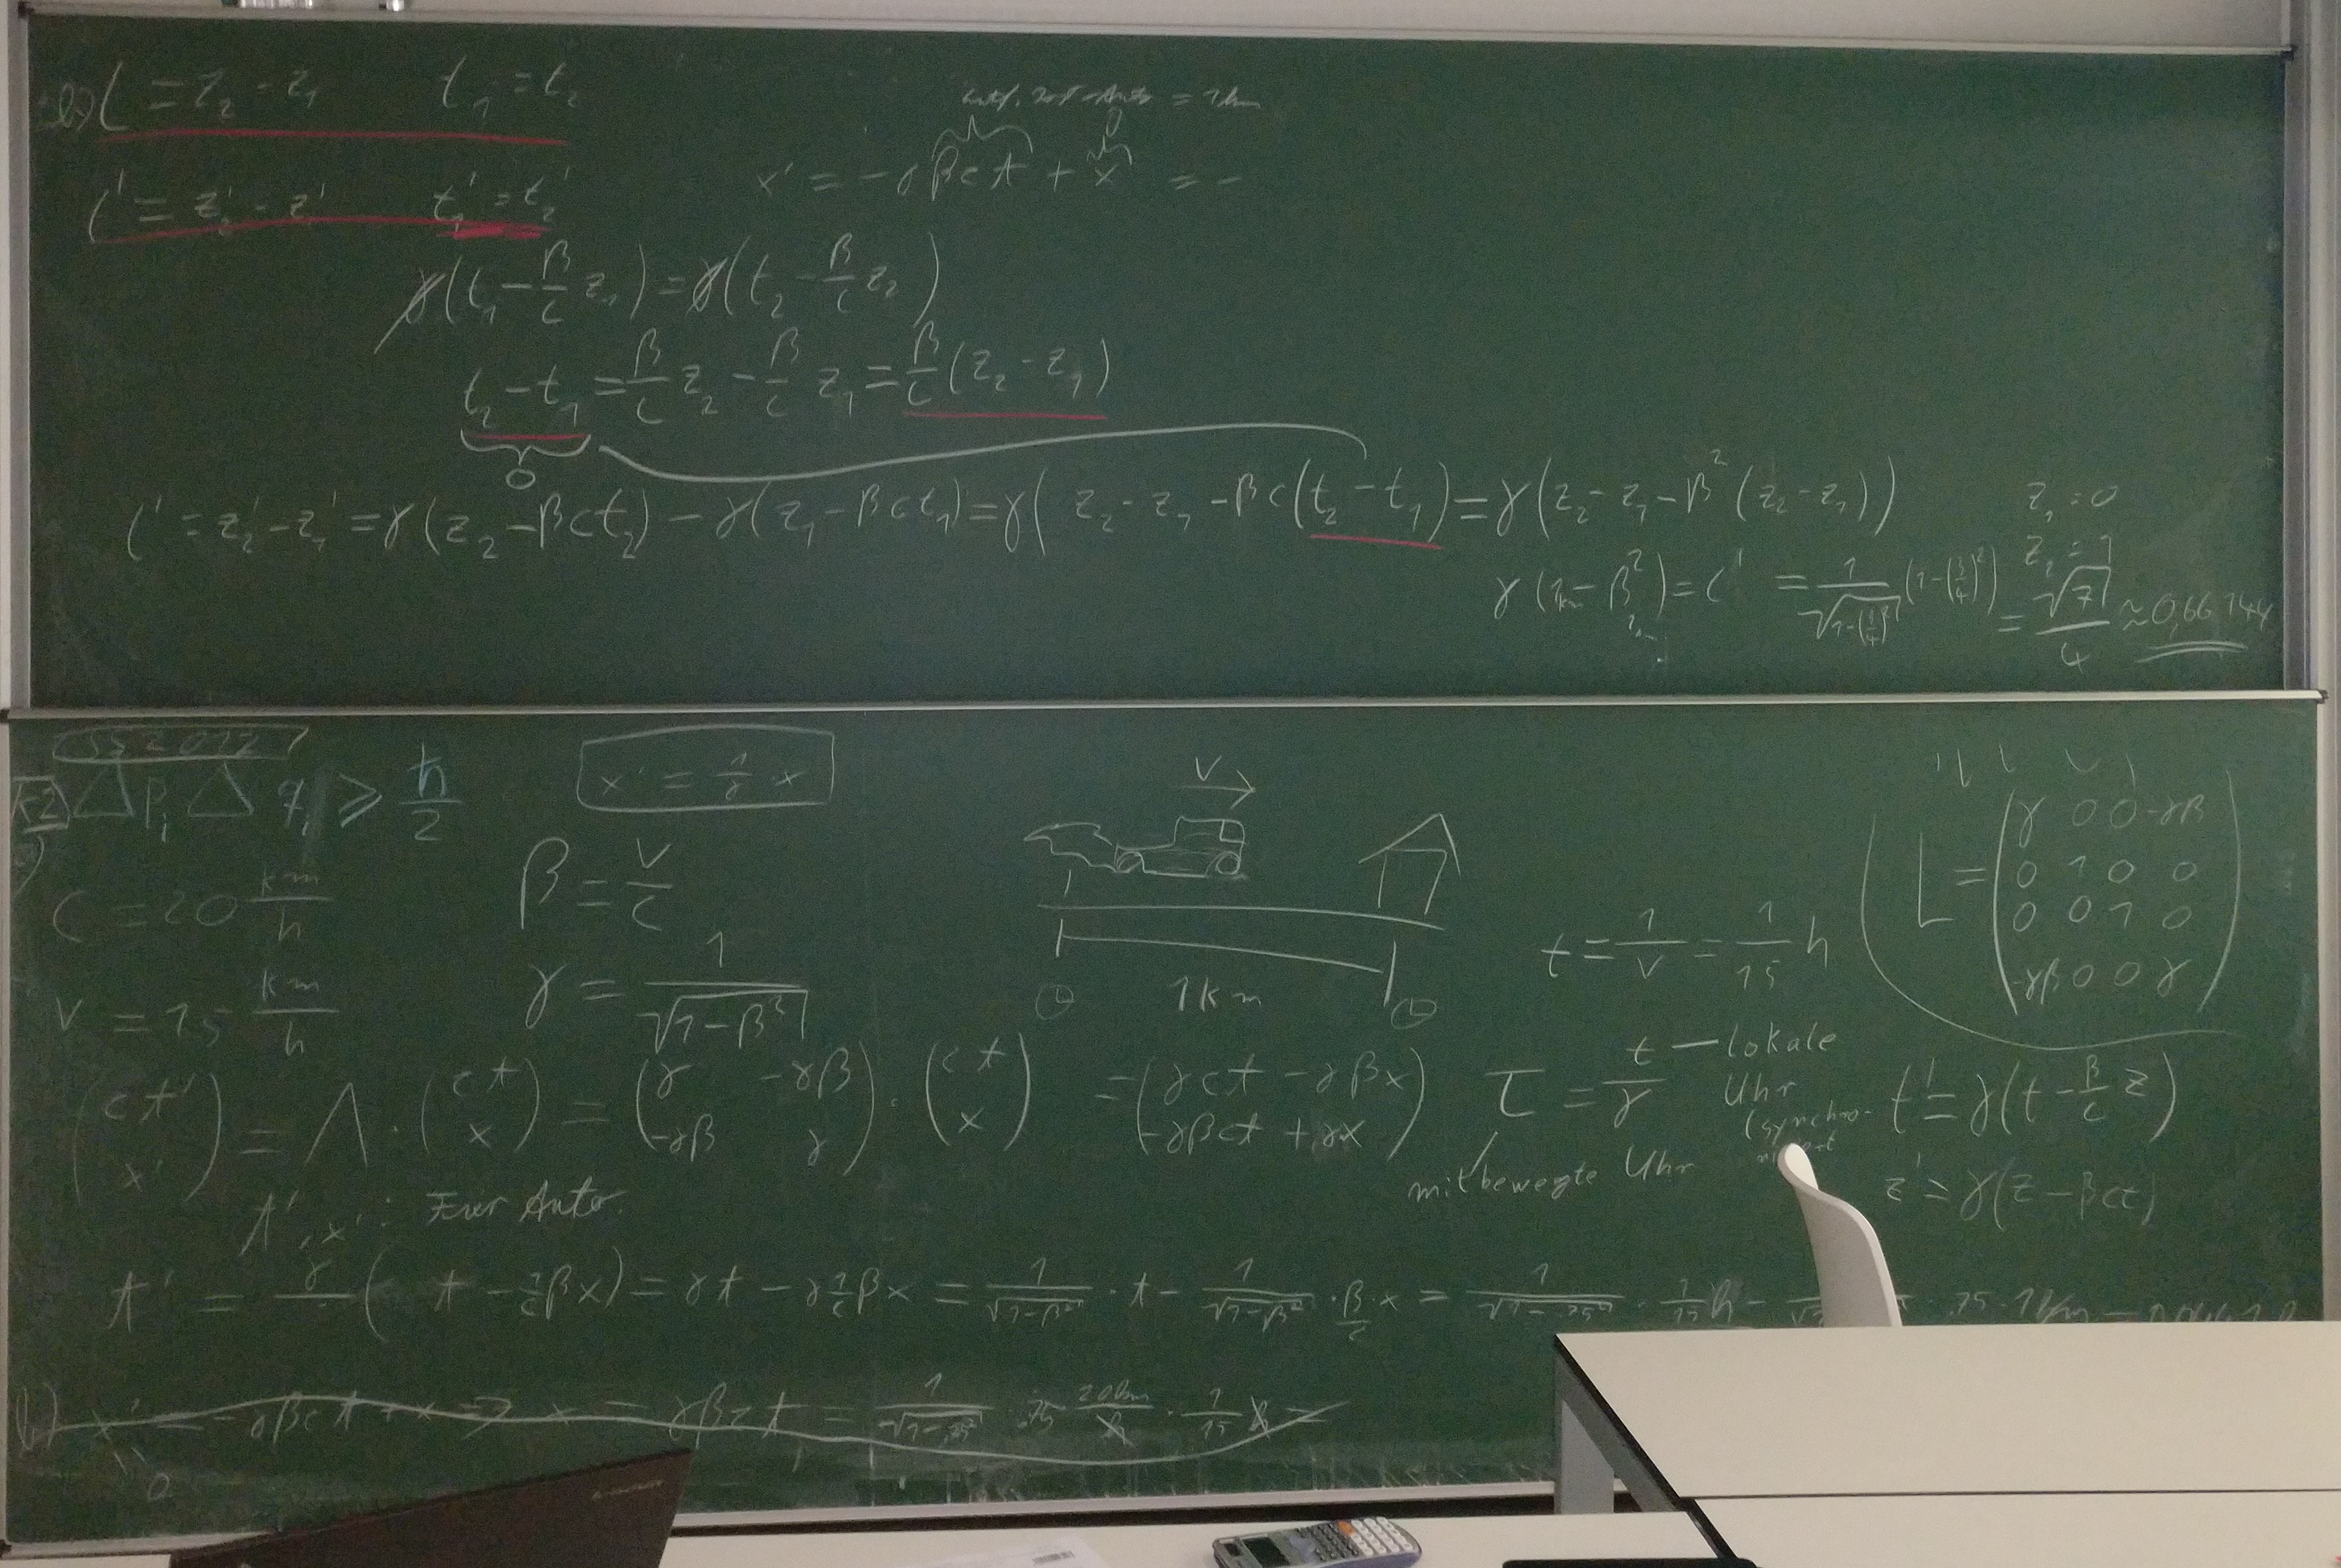 b) l = z₂ - z₁   t₁ = t₂
Auto = 1km
0
l' = z₂' - z₁'   t₁' = t₂'
x' = -γβct + x = -
γ(t₁ - β/c z₁) = γ(t₂ - β/c z₂)
t₂ - t₁ = β/c z₂ - β/c z₁ = β/c (z₂ - z₁)
0
l' = z₂' - z₁' = γ(z₂ - βct₂) - γ(z₁ - βct₁) = γ(z₂ - z₁ - βc(t₂ - t₁)) = γ(z₂ - z₁ - β²(z₂ - z₁))
z₁ = 0
z₂ = 1
γ(1km - β²) = l' = 1/√(1-(3/4)²) (1-(3/4)²) = √7/4 ≈ 0,66144
SS 2017
K2 Δp_i Δq_i ≥ ħ/2
x' = 1/γ x
a)
c = 20 km/h
v = 15 km/h
β = v/c
γ = 1/√(1-β²)
v
1km
t = 1/v = 1/15 h
L = (γ 0 0 -γβ
0 1 0 0
0 0 1 0
-γβ 0 0 γ)
(ct' x') = Λ · (ct x) = (γ -γβ -γβ γ) · (ct x) = (γct - γβx -γβct + γx)
τ = t/γ
t — lokale
Uhr
(synchro-
mitbewegte Uhr
t' = γ(t - β/c z)
z' = γ(z - βct)
t', x': Feuer Auto.
t' = γ(t - 1/c βx) = γt - γ 1/c βx = 1/√(1-β²) · t - 1/√(1-β²) · β/c · x = 1/√(1-.75²) · 1/15 h - · .75 · 1km
b) x' = -γβct + x => x = γβct = 1/√(1-.75²) · .75 20km/h · 1/15 h =
0